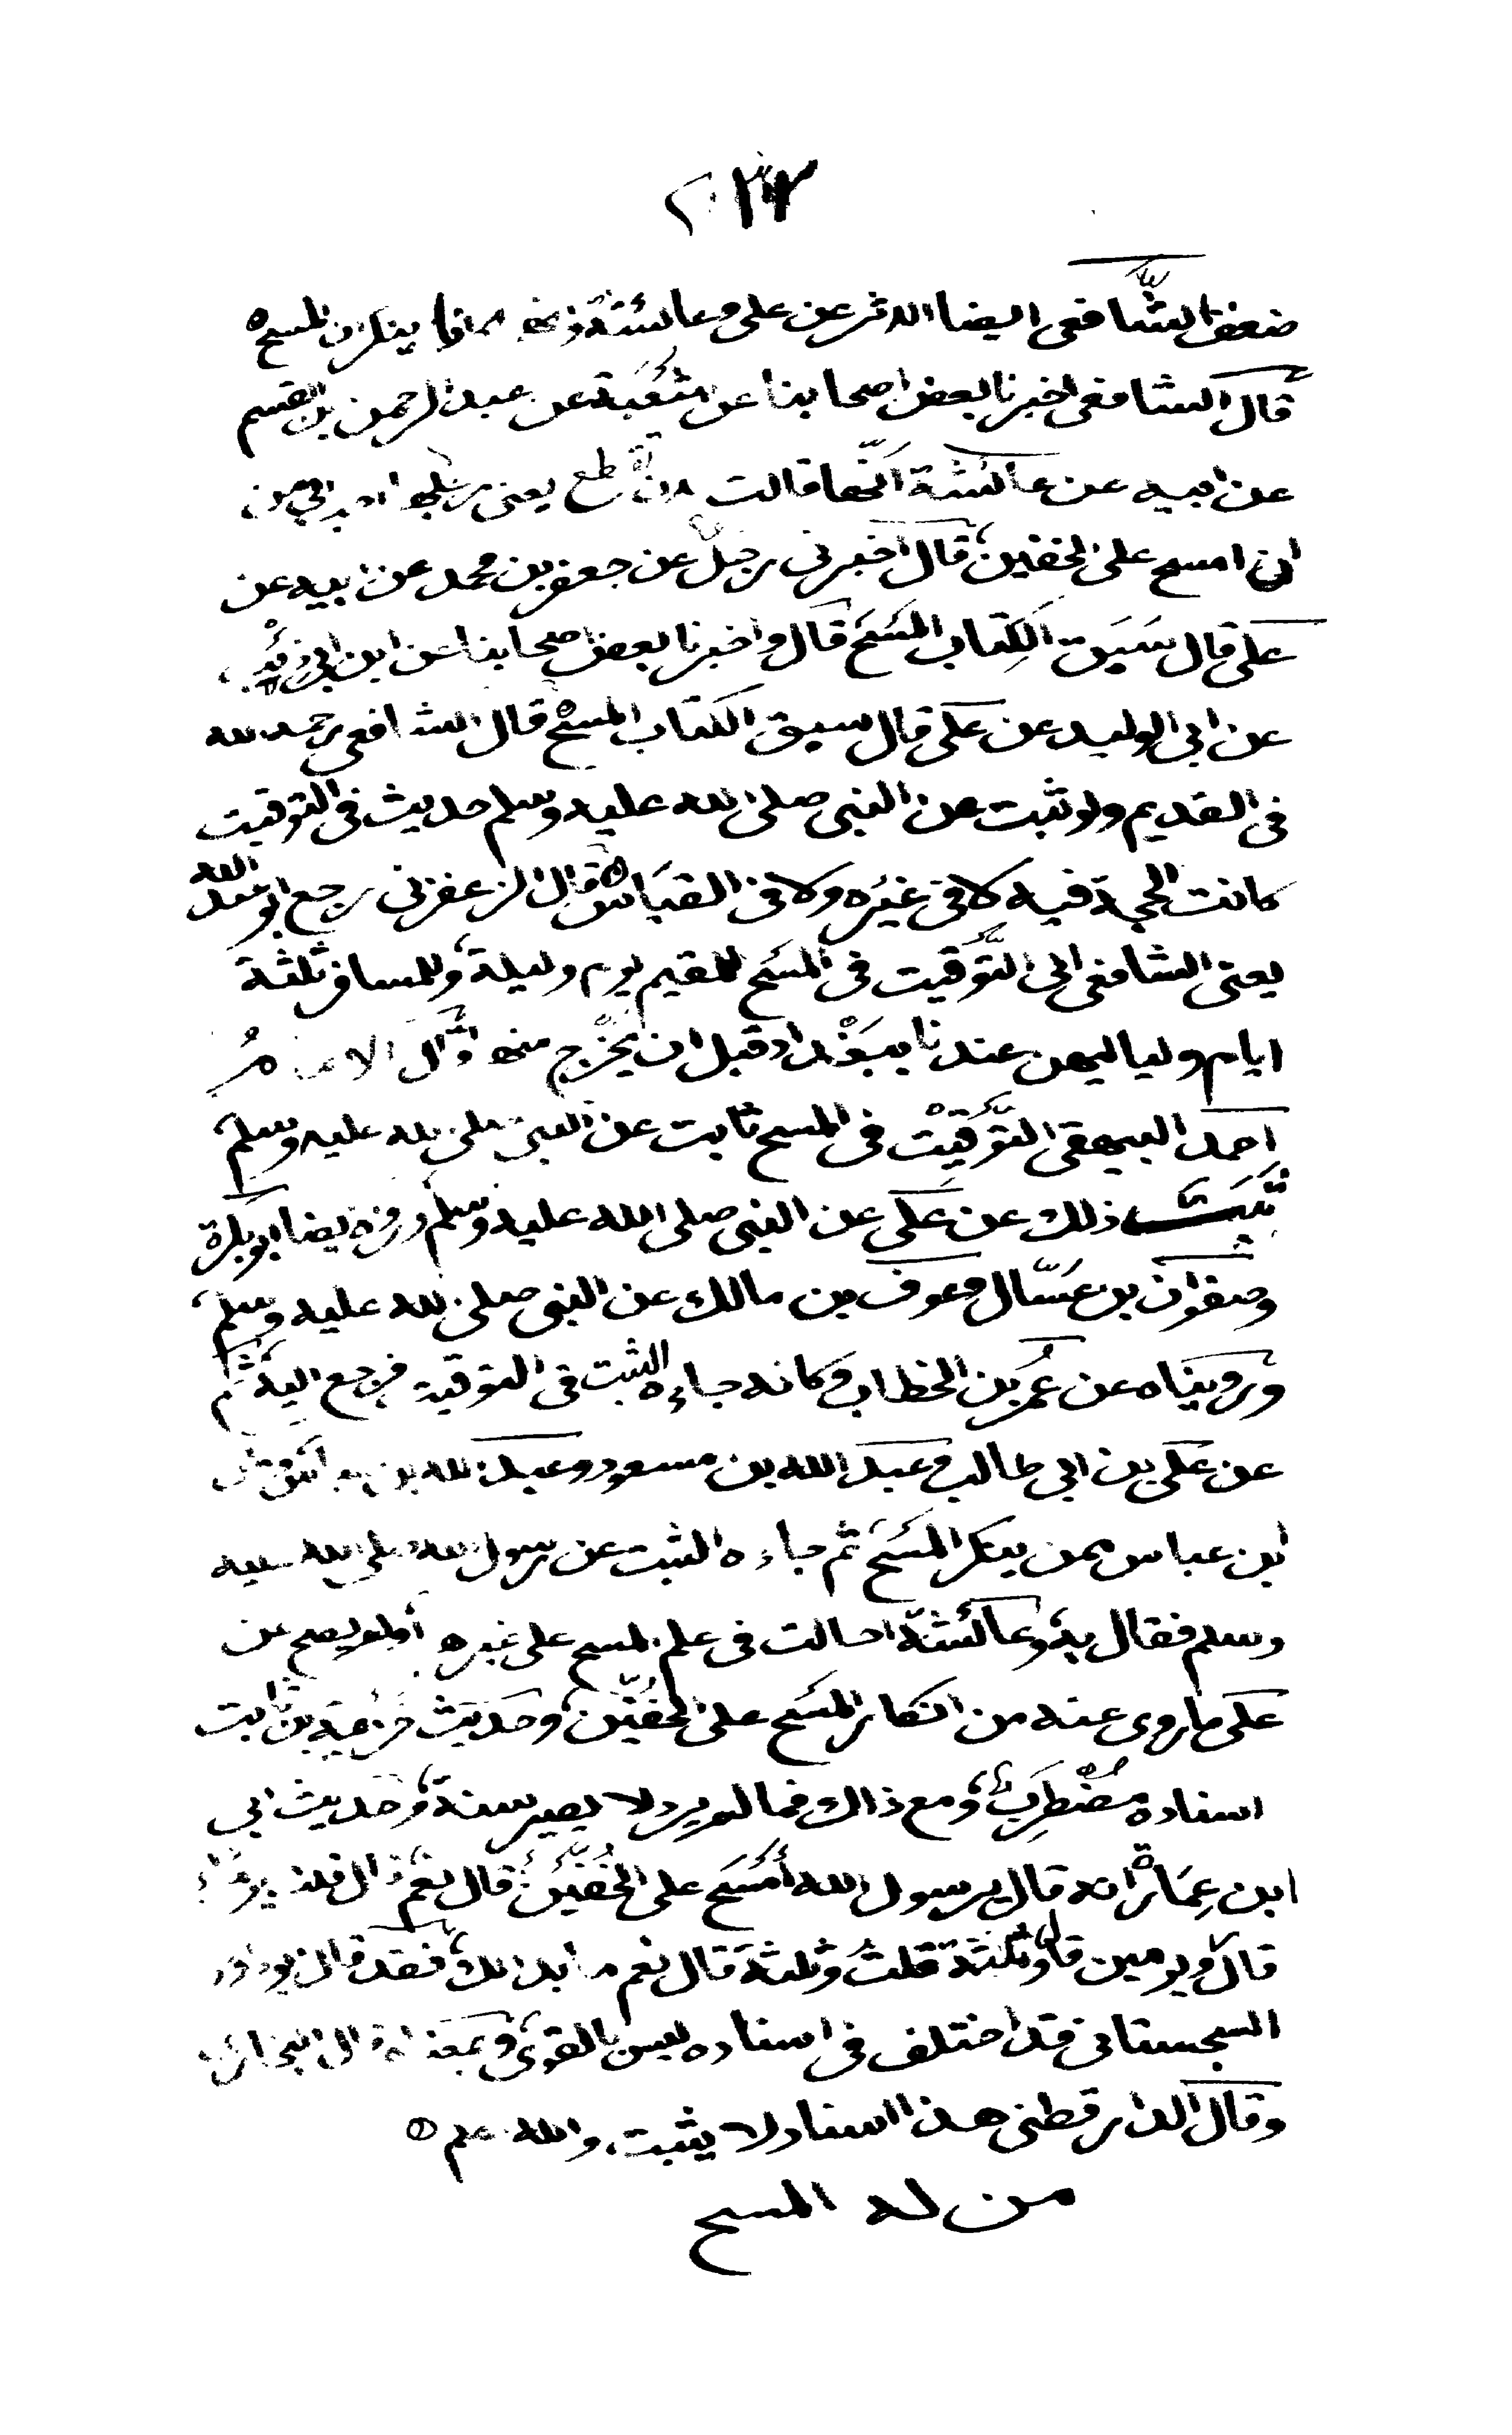 ضعف الشافعي ايضا الاثر عن على وعائشة ينكرن المسح
قال الشافعى اخبرنا بعض اصحابنا عن شعبة عن عبد الرحمن بن القسم
عن ابيه عن عائشة انها قالت يعنى رجليها احب الي من
ان امسح على الخفين قال اخبرنى رجل عن جعفر بن محمد عن ابيه عن
على قال سَبَق الكِتاب المَسَح قال واخبرنا بعض اصحابنا عن ابن ابى
عن ابي الوليد عن على قال سبق الكتاب المسح قال الشافعى رحمه الله
فى القديم ولو ثبت عن النبى صلى الله عليه وسلم حديث فى التوقيت
كانت الحجة فيه لا فى غيره ولا فى القياس قال الزعفرنى رجع ابو عبد الله
يعنى الشافعى الى التَّوقيت فى المسَح للمقيم يوم وليلة وللمسافر ثلثة
ايام ولياليهن عندنا ببَغْداد قبل ان يخرُج منها قال الامام
احمد البيهقى التوقيت فى المسح ثابت عن النبى صلى الله عليه وسلم
ثبَت ذلك عن على عن النبى صلى الله عليه وسلم ورواه ايضا ابو بكرة
وصفوان بن عسّال وعوف بن مالك عن النبى صلى الله عليه وسلم
ورويناه عن عُمر بن الخطاب وكانه جاءه الثبت فى التوقيت فرجع اليه ثم
عن على بن ابي طالب وعبد الله بن مسعود وعبد الله بن عباس وقد كان
ابن عباس ممن ينكر المسَح ثم جاءه الثبت عن رسول الله صلى الله عليه
وسلم فقال به وعائشة احالت فى علم المسح على غيره ولم يصح عن
على ما روى عنه من انكار المسَح على الخفَّين وحديث خزيمة بن ثابت
اسناده مضْطرِبٌ ومع ذاك فما لم يرد لا يصير سنة وحديث ابي
ابن عِمَارة انه قال يرسول الله أَمْسَح على الخُفَّيْن قال نعَم قال قلت يوما
قال ويومين قال وثلثة قلتُ وثلثةَ قال نعم ما بدا لك فقد قال ابو داود
السجستانى قد اختلف فى اسناده ليس بالقوى وبمعناه قال البخارى
وقال الدارقطنى هذا اسناد لا يثبت والله اعلم
من له المسح